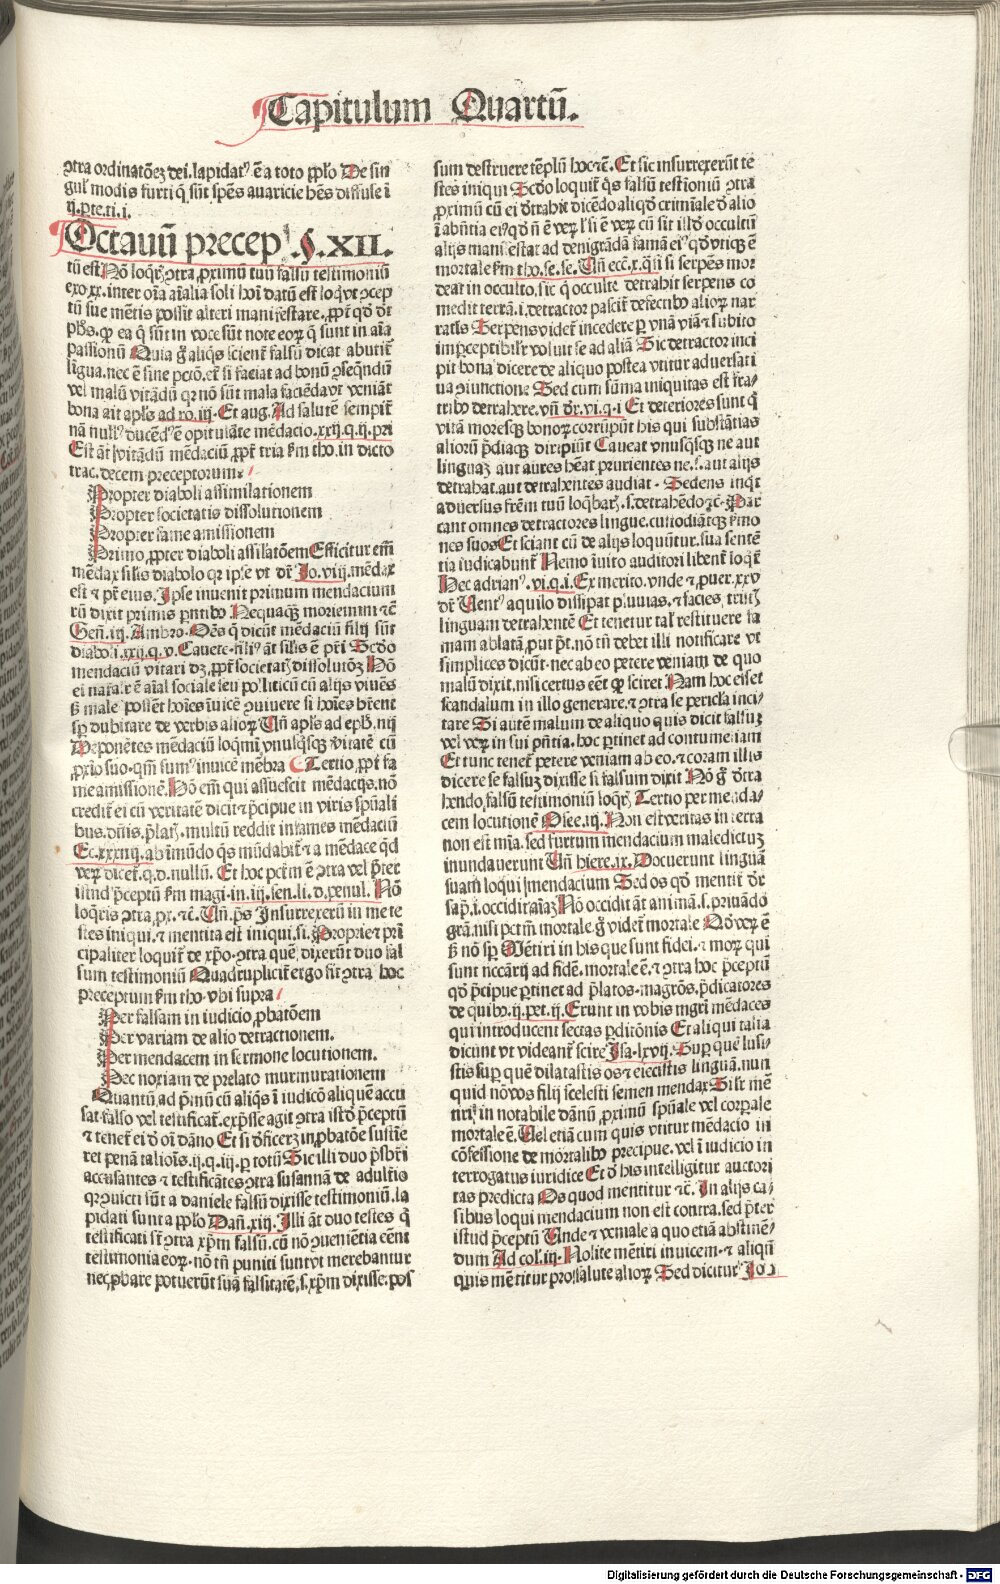 Capitulum Quartū.
ꝯtra ordinatōeʒ dei. lapidatꝰ ē a toto ꝓplo De sin
gul' modis furti q̄ sūt spēs auaricie hēs diffuse i
ij. ꝑte. ti. i.
Octauū precep .§.XII.
tū est Nō loq̄rꝭ ꝯtra ꝓximū tuū falsū testimoniū
exo. xx. inter oīa aīalia soli hoī datū est loq̄ vt ꝯcep
tū sue mētis possit alteri manifestare. ꝓpt̄ qd̄ dt̄
phs. ꝙ ea q̄ sūt in voce sūt note eoꝝ q̄ sunt in aīa
passionū Quia ḡ aliq̄s scient̄ falsū dicat abutit̄
ligua. nec ē sine pctō. et si faciat ad bonū ꝯseq̄ndū
vel malū vitādū qꝛ nō sūt mala faciēda vt veniāt
bona ait apls̄ ad ro. iij. Et aug. Ad salutē sempit̄
nā nullꝰ ducēdꝰ ē opitulāte mēdacio. xxij. q. ij. pri
Est āt vitādū mēdaciū ꝓpt̄ tria ẜm tho. in dicto
trac. decem preceptorum.
Propter diaboli assimilationem
Propter societatis dissolutionem
Propter fame amissionem
Primo ꝓpter diaboli assilatōem Efficitur em̄
mēdax silis diabolo qꝛ ipse vt dr̄ Jo. viij. mēdax
est ⁊ pr̄ eius. Ipse inuenit primum mendacium
cū dixit primis pn̄tibꝰ Nequaq̄ moriemini ⁊c̄
Gen̄. iij. Ambro. Oēs q̄ dicūt mēdaciū filij sūt
diaboli. xxij. q. v. Cauete. filiꝰ āt silis ē pr̄i Scd̄o
mendaciū vitari dʒ ꝓpt̄ societatꝭ dissolutōʒ Nō
ei nāłr ē aīal sociale seu politicū cū alijs viuēs
ẞ male possēt hoīes īuicē ꝯuiuere si hoīes hr̄ent
sꝑ dubitare de verbis alioꝝ Vn̄ apls̄ ad eph. iiij
Deponētes mēdaciū loqm̄i vnusq̄sqꝫ v̄itatē cū
ꝓxīo suo. qm̄ sumꝰ inuicē mēbra Tertio ꝓpt̄ fa
me amissionē. Nō em̄ qui assuescit mēdacijs. nō
credit̄ ei cū veritatē dicit ⁊ p̄cipue in viris spūali
bus. dn̄is. p̄latꝭ. multū reddit infames mēdaciū
Ec. xxxiiij. ab īmūdo q̄s mūdabit̄ ⁊ a mēdace qd̄
veꝝ dicet̄. q. d. nullū. Et hoc pctm̄ ē ꝯtra vel p̄ter
istud p̄ceptū ẜm magi. in. iij. sen. li. d. penul. Nō
loq̄ris ꝯtra. px̄. ⁊c̄. Vn̄. ps̄ Insurrexerūt in me te
stes iniqui. ⁊ mentita est iniqui. si. Proprie ⁊ pri
cipaliter loquit̄ de xp̄o. ꝯtra quē dixerūt duo fal
sum testimoniū Quadruplicit̄ ergo fit ꝯtra hoc
preceptum ẜm tho. vbi supra
Per falsam in iudicio ꝓbatōem
Per variam de alio detractionem.
Per mendacem in sermone locutionem.
Per noxiam de prelato murmurationem
Quantū ad p̄mū cū aliq̄s ī iudicō aliquē accu
sat falso vel testificat̄. exp̄sse agit ꝯtra istd̄ p̄ceptū
⁊ tenet̄ ei d̄ oī dāno Et si d̄ficerʒ in ꝓbatōe sustīe
ret penā talioīs. ij. q. iij. ꝑ totū Sic illi duo p̄sbr̄i
accusantes ⁊ testificātes ꝯtra susannā de adult̄io
qꝛ ꝯuicti sūt a daniele falsū dixisse testimoniū. la
pidati sunt a ꝓplo Dan̄. xiij. Illi āt duo testes q̄
testificati st̄ ꝯtra xp̄m falsū. cū nō ꝯuenientia eēnt
testimonia eoꝝ. nō tn̄ puniti sunt vt merebantur
nec ꝓbare potuerūt suā falsitatē. s. xp̄m dixisse. pos
sum destruere tēplū hoc ⁊c̄. Et sic insurrexerūt te
stes iniqui Scd̄o loquit̄ q̄s falsū testioniū ꝯtra
ꝓximū cū ei d̄trahit dicēdo aliqd̄ criminale d̄ alio
ī abn̄tia eiꝰ qd̄ nō ē veꝝ l' si ē veꝝ cū sit illd̄ occultū
alijs manifestat ad denigrādā famā eiꝰ qd̄ vtiqꝫ ē
mortale ẜm tho. se. se. Vn̄ ecc̄. x. q̄si si serpēs mor
deat in occulto, sic q̄ occulte detrahit serpens co
medit terrā. i. detractor pascit̄ defectibꝰ alioꝝ nar
ratis Serpens videt̄ incedere ꝑ vnā viā ⁊ subito
imꝑceptibilr̄ voluit se ad aliā Sic detractor inci
pit bona dicere de aliquo postea vtitur aduersati
ua ꝯiunctione Sed cum sūma iniquitas est fra/
tribꝰ detrahere. vn̄ dr̄. vi. q. i Et deteriores sunt q̄
vitā moresqꝫ bonoꝝ corrūpūt his qui substātias
alioꝝ p̄diaqꝫ diripiūt Caueat vnusq̄sqꝫ ne aut
linguaʒ aut aures hēat prurientes ne. s. aut alijs
detrahat. aut detrahentes audiat. Sedens inq̄t
aduersus fr̄em tuū loq̄barꝭ. s. detrahēdo ⁊c̄. Par
cant omnes detractores lingue. custodiātqꝫ ẜmo
nes suos Et sciant cū de alijs loquūtur. sua sentē
tia iudicabunt̄ Nemo īuito auditori libent̄ loq̄t̄
Hec adrianꝰ. vi. q. i. Ex merito. vnde ⁊ ꝓuer. xxv
dr̄ Ventꝰ aquilo dissipat pluuias. ⁊ facies tristꝭ
linguam detrahentē Et tenetur tal' restituere fa
mam ablatā, put p̄t. nō tn̄ debet illi notificare vt
simplices dicūt. nec ab eo petere veniam de quo
malū dixit. nisi certus eēt ꝙ sciret Nam hoc eēset
scandalum in illo generare. ⁊ ꝯtra se pericła inci/
tare Si autē malum de aliquo quis dicit falsuʒ
vel veꝝ in sui pn̄tia. hoc ꝑtinet ad contumeliam
Et tunc tenet̄ petere veniam ab eo. ⁊ coram illis
dicere se falsuʒ dixisse si falsum dixit Nō ḡ d̄tra
hendo, falsū testimoniū loq̄rꝭ Tertio per menda/
cem locutionē Osee. iiij. Non est veritas in terra
non est mīa. sed furtum mendacium maledictuʒ
inundauerunt Vn̄ hiere. ix. Docuerunt linguā
suam loqui mendacium Sed os qd̄ mentit̄ dr̄
sap̄. i. occidit aīaʒ Nō occidit āt animā. s. priuādo
grā. nisi pctm̄ mortale. ḡ videt̄ mortale Qd̄ veꝝ ē
ẞ nō sꝑ Mētiri in his que sunt fidei. ⁊ moꝝ qui
sunt nccārij ad fidē. mortale ē. ⁊ ꝯtra hoc p̄ceptū
qd̄ p̄cipue ꝑtinet ad p̄latos. magrōs. p̄dicatores
de quibꝰ. ij. pet. ij. Erunt in vobis mgr̄i mēdaces
qui introducent sectas ꝑditōnis Et aliqui talia
dicunt vt videant̄ scire Isa. lxvij. Suꝑ quē lusi/
stis suꝑ quē dilatastis os ⁊ eiecistis linguā. nun
quid nō vos filij scelesti semen mendax Silr̄ mē
tiri in notabile dānū ꝓximū spūale vel corꝑale
mortale ē. Vel etiā cum quis vtitur mēdacio in
cōfessione de mortalibꝰ precipue. vel ī iudicio in
terrogatus iuridice Et d̄ his intelligitur auctori
tas predicta Os quod mentitur ⁊c̄. In alijs ca/
sibus loqui mendacium non est contra. sed p̄ter
istud p̄ceptū Unde ⁊ veniale a quo etiā abstinē/
dum Ad col'. iij. Nolite mētiri inuicem. ⁊ aliqn̄
quis mētitur pro salute alioꝝ Sed dicitur Job
Digitalisierung gefördert durch die Deutsche Forschungsgemeinschaft - DFG